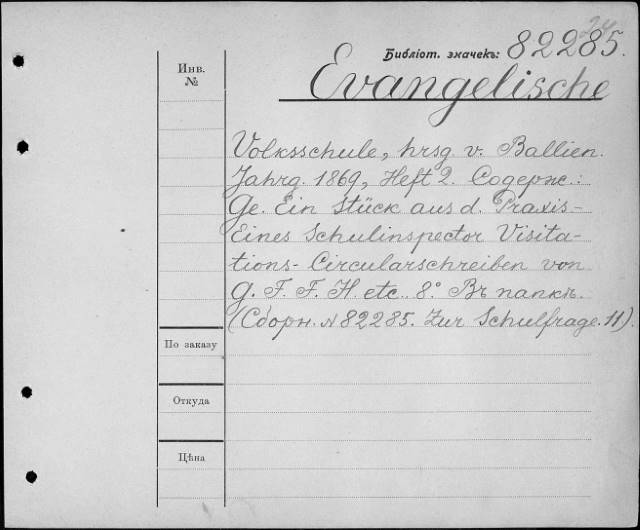 24
Библіот. значекъ: 82285.
Evangelische
Инв.
№
Volksschule, hrsg. v. Ballien.
Jahrg. 1869, Heft 2. Содерж.:
Ge. Ein Stück aus d. Praxis-
Eines Schulinspector Visita-
tions-Circularschreiben von
G. F. F. H. etc. 8° Въ папкѣ.
(Сборн. № 82285. Zur Schulfrage. 11).
По заказу
Откуда
Цѣна